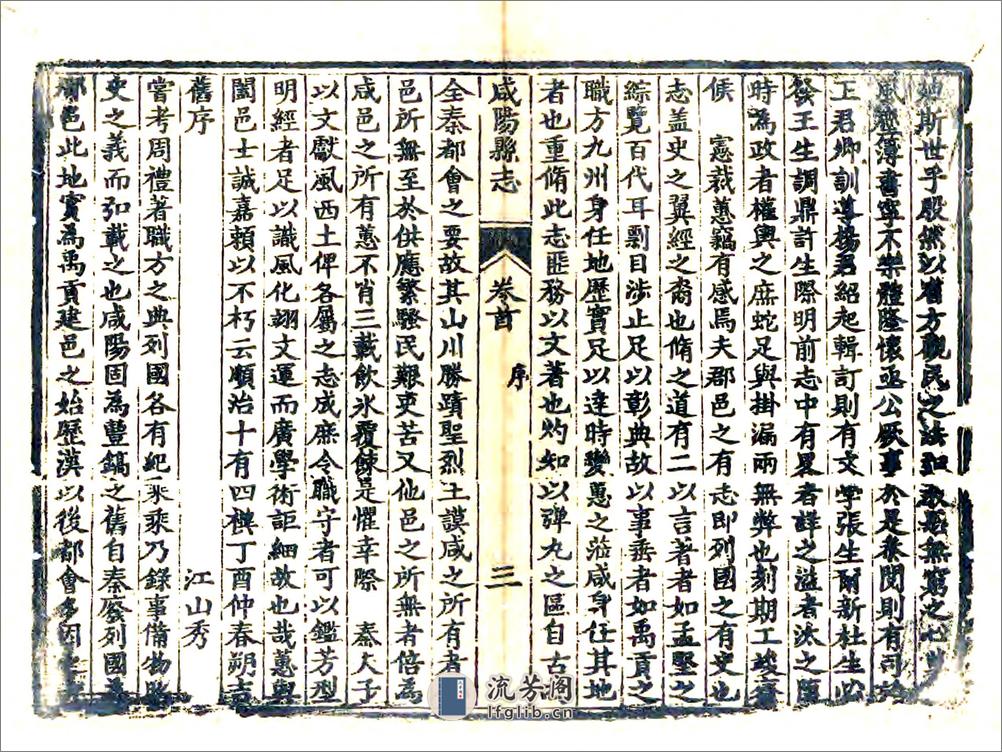 斯世乎殷然以省方觀民之法
簿書寧不樂體隆懷亟公厥事於是叅閱則有司
王君卿訓導楊君紹起輯訂則有文學張生爾新杜生
發王生調鼎許生際明前志中有畧者詳之溢者汰之
時為政者權輿之庶蛇足與掛漏兩無弊也刻期工竣
侯 憲裁蕙竊有感焉夫郡邑之有志即列國之有史也
志蓋史之翼經之裔也脩之道有二以言著者如孟堅之
綜覽百代耳剽目涉止足以彰典故以事垂者如禹貢之
職方九州身任地歷實足以達時變蕙之蒞咸身任其地
者也重脩此志匪務以文著也灼知以彈丸之區自古
咸陽縣志 卷首 序 三
全秦都會之要故其山川勝蹟聖烈王謨咸之所有者
邑所無至於供應繁騷民艱吏苦又他邑之所無者倍為
咸邑之所有蕙不肖三載飲氷覆餗是懼幸際 秦大子
以文獻風西土俾各屬之志成庶令職守者可以鑑芳型
明經者足以識風化翊文運而廣學術詎細故也哉蕙與
闔邑士誠嘉賴以不朽云順治十有四禩丁酉仲春朔吉
舊序 江山秀
嘗考周禮著職方之典列國各有紀乘乘乃錄事備物
史之義而弘載之也咸陽固為豐鎬之舊自秦廢列國
邑此地實為禹貢建邑之始歷漢以後都會多因
流芳阁
lfglib.cn